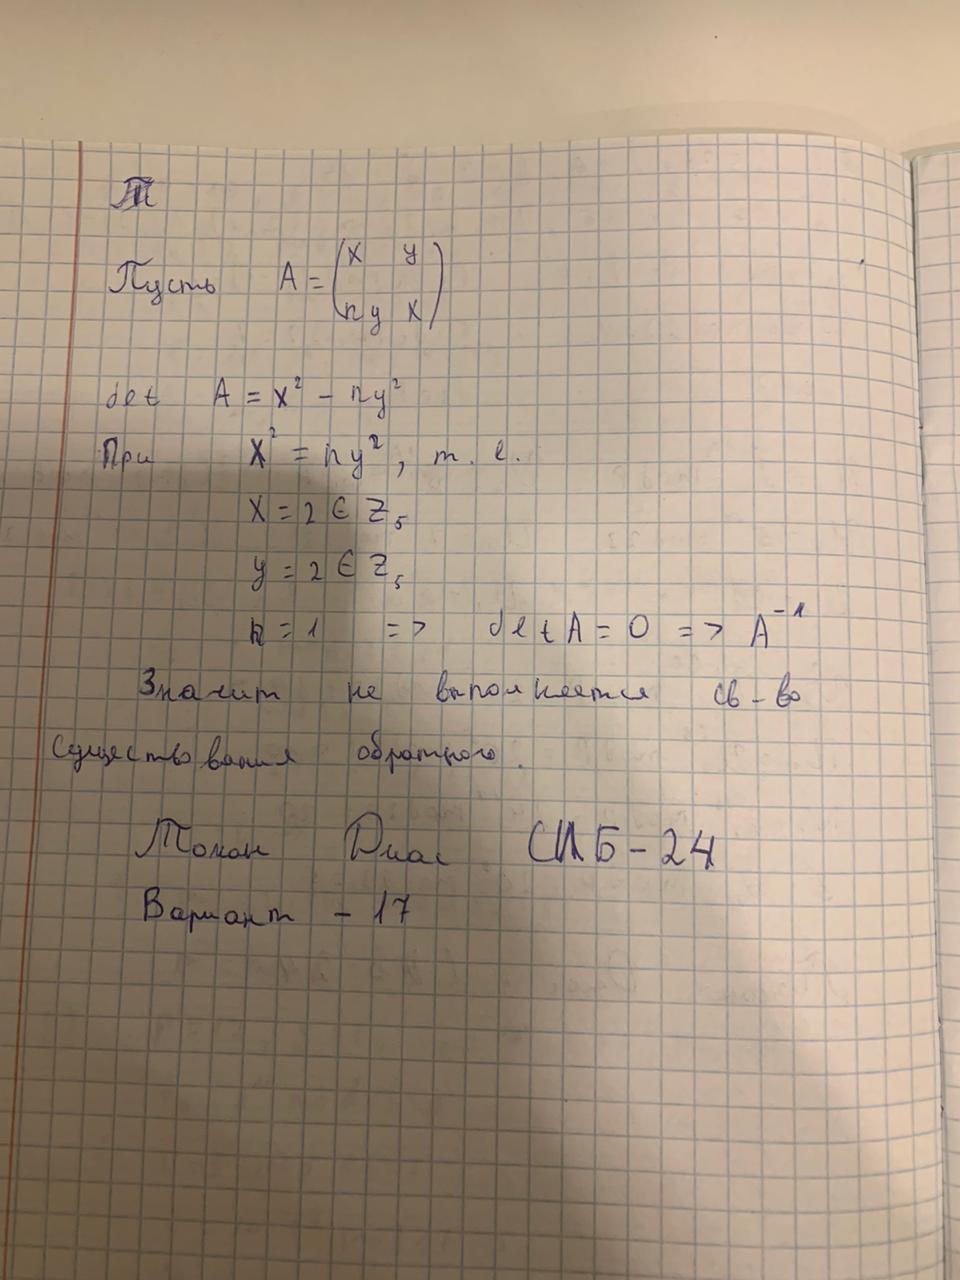 Пусть A = (x y ny x)
det A = x² - ny²
При x² = ny², т. е.
x = 2 ∈ Z₅
y = 2 ∈ Z₅
n = 1 => det A = 0 => A⁻¹
Значит не выполняется св-во
существования обратного.
Токан Диас СИБ-24
Вариант - 17